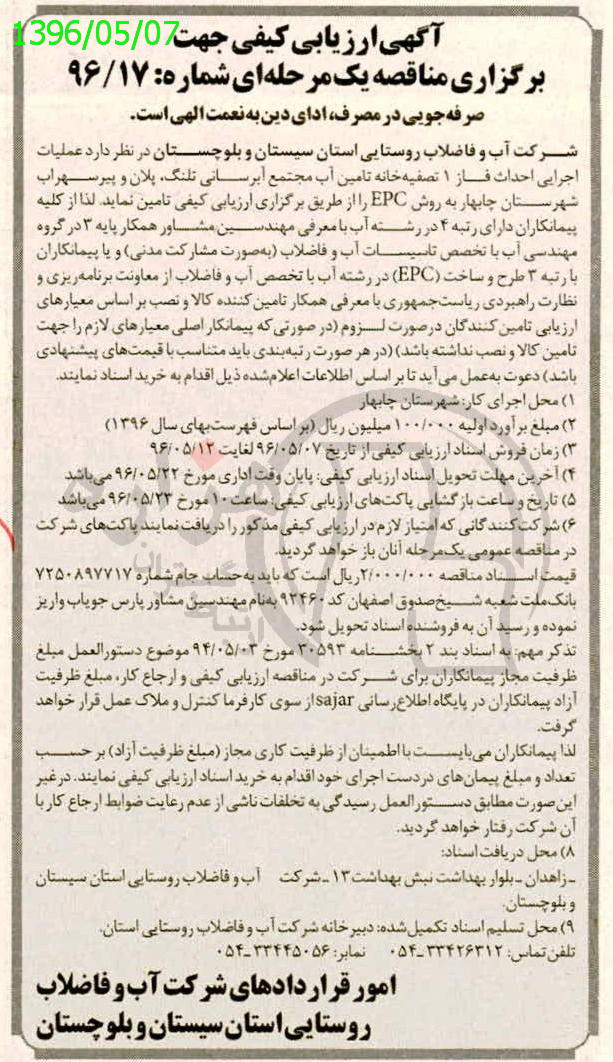 1396/05/07
آگهی ارزیابی کیفی جهت
برگزاری مناقصه یک مرحله‌ای شماره: ۹۶/۱۷
صرفه‌جویی در مصرف، ادای دین به نعمت الهی است.
شرکت آب و فاضلاب روستایی استان سیستان و بلوچستان در نظر دارد عملیات
اجرایی احداث فاز ۱ تصفیه‌خانه تامین آب مجتمع آبرسانی تلنگ، پلان و پیرسهراب
شهرستان چابهار به روش EPC را از طریق برگزاری ارزیابی کیفی تامین نماید. لذا از کلیه
پیمانکاران دارای رتبه ۴ در رشته آب با معرفی مهندسین مشاور همکار پایه ۳ در گروه
مهندسی آب با تخصص تاسیسات آب و فاضلاب (به‌صورت مشارکت مدنی) و یا پیمانکاران
با رتبه ۳ طرح و ساخت (EPC) در رشته آب با تخصص آب و فاضلاب از معاونت برنامه‌ریزی و
نظارت راهبردی ریاست‌جمهوری با معرفی همکار تامین‌کننده کالا و نصب بر اساس معیارهای
ارزیابی تامین‌کنندگان درصورت لزوم (در صورتی که پیمانکار اصلی معیارهای لازم را جهت
تامین کالا و نصب نداشته باشد) (در هر صورت رتبه‌بندی باید متناسب با قیمت‌های پیشنهادی
باشد) دعوت به‌عمل می‌آید تا بر اساس اطلاعات اعلام‌شده ذیل اقدام به خرید اسناد نمایند.
۱) محل اجرای کار: شهرستان چابهار
۲) مبلغ برآورد اولیه ۱۰۰/۰۰۰ میلیون ریال (بر اساس فهرست‌بهای سال ۱۳۹۶)
۳) زمان فروش اسناد ارزیابی کیفی از تاریخ ۹۶/۰۵/۰۷ لغایت ۹۶/۰۵/۱۲
۴) آخرین مهلت تحویل اسناد ارزیابی کیفی: پایان وقت اداری مورخ ۹۶/۰۵/۲۲ می‌باشد
۵) تاریخ و ساعت بازگشایی پاکت‌های ارزیابی کیفی: ساعت ۱۰ مورخ ۹۶/۰۵/۲۳ می‌باشد
۶) شرکت‌کنندگانی که امتیاز لازم در ارزیابی کیفی مذکور را دریافت نمایند پاکت‌های شرکت
در مناقصه عمومی یک‌مرحله آنان باز خواهد گردید.
قیمت اسناد مناقصه ۲/۰۰۰/۰۰۰ ریال است که باید به‌حساب جام شماره ۷۲۵۰۸۹۷۷۱۷
بانک‌ملت شعبه شیخ‌صدوق اصفهان کد ۹۲۴۶۰ به‌نام مهندسین مشاور پارس جویاب واریز
نموده و رسید آن به فروشنده اسناد تحویل شود.
تذکر مهم: به اسناد بند ۲ بخشنامه ۳۰۵۹۳ مورخ ۹۴/۰۵/۰۳ موضوع دستورالعمل مبلغ
ظرفیت مجاز پیمانکاران برای شرکت در مناقصه ارزیابی کیفی و ارجاع کار، مبلغ ظرفیت
آزاد پیمانکاران در پایگاه اطلاع‌رسانی sajar از سوی کارفرما کنترل و ملاک عمل قرار خواهد
گرفت.
لذا پیمانکاران می‌بایست با اطمینان از ظرفیت کاری مجاز (مبلغ ظرفیت آزاد) بر حسب
تعداد و مبلغ پیمان‌های دردست اجرای خود اقدام به خرید اسناد ارزیابی کیفی نمایند. در غیر
این‌صورت مطابق دستورالعمل رسیدگی به تخلفات ناشی از عدم رعایت ضوابط ارجاع کار با
آن شرکت رفتار خواهد گردید.
۸) محل دریافت اسناد:
ـ زاهدان ـ بلوار بهداشت نبش بهداشت ۱۳ ـ شرکت آب و فاضلاب روستایی استان سیستان
و بلوچستان.
۹) محل تسلیم اسناد تکمیل‌شده: دبیرخانه شرکت آب و فاضلاب روستایی استان.
تلفن تماس: ۳۳۴۲۶۳۱۲ـ۰۵۴ نمابر: ۳۳۴۴۵۰۵۶ـ۰۵۴
امور قراردادهای شرکت آب و فاضلاب
روستایی استان سیستان و بلوچستان